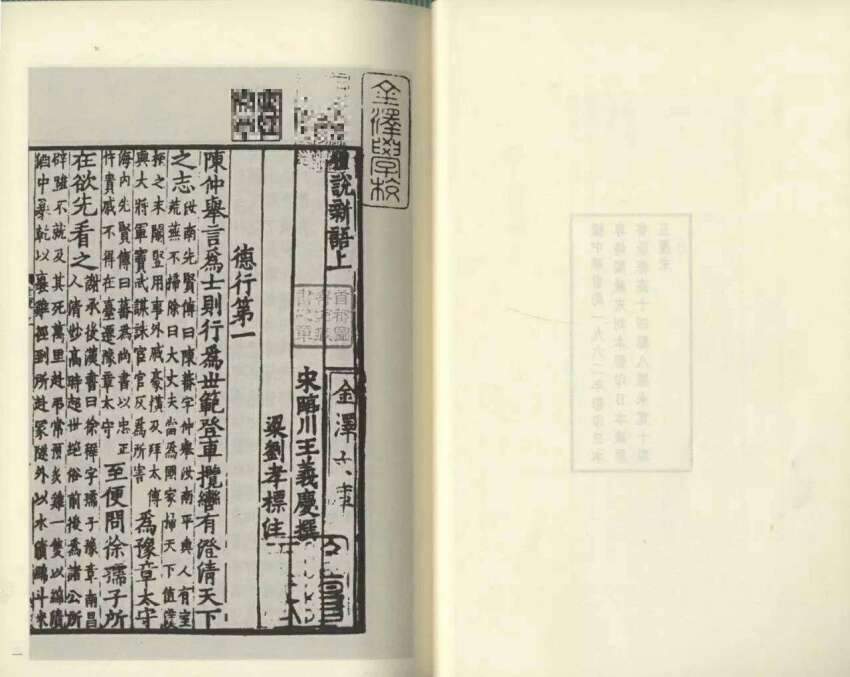 金澤學校
說新語上
金澤
宋臨川王義慶撰
梁劉孝標注
德行第一
陳仲舉言爲士則行爲世範登車攬轡有澄清天下
之志
汝南先賢傳曰陳蕃字仲舉汝南平輿人有室
荒蕪不掃除曰大丈夫當爲國家掃天下值漢
桓之末閹豎用事外戚豪橫及拜太傅
與大將軍竇武謀誅宦官反爲所害
爲豫章太守
海內先賢傳曰蕃爲尚書以忠正
忤貴戚不得在臺遷豫章太守
至便問徐孺子所
在欲先看之
謝承後漢書曰徐穉字孺子豫章南昌
人清妙高時超世絕俗前後爲諸公所
辟雖不就及其死萬里赴弔常預炙雞一隻以綿漬
酒中暴乾以裹雞徑到所赴冢隧外以水漬綿斗米
一